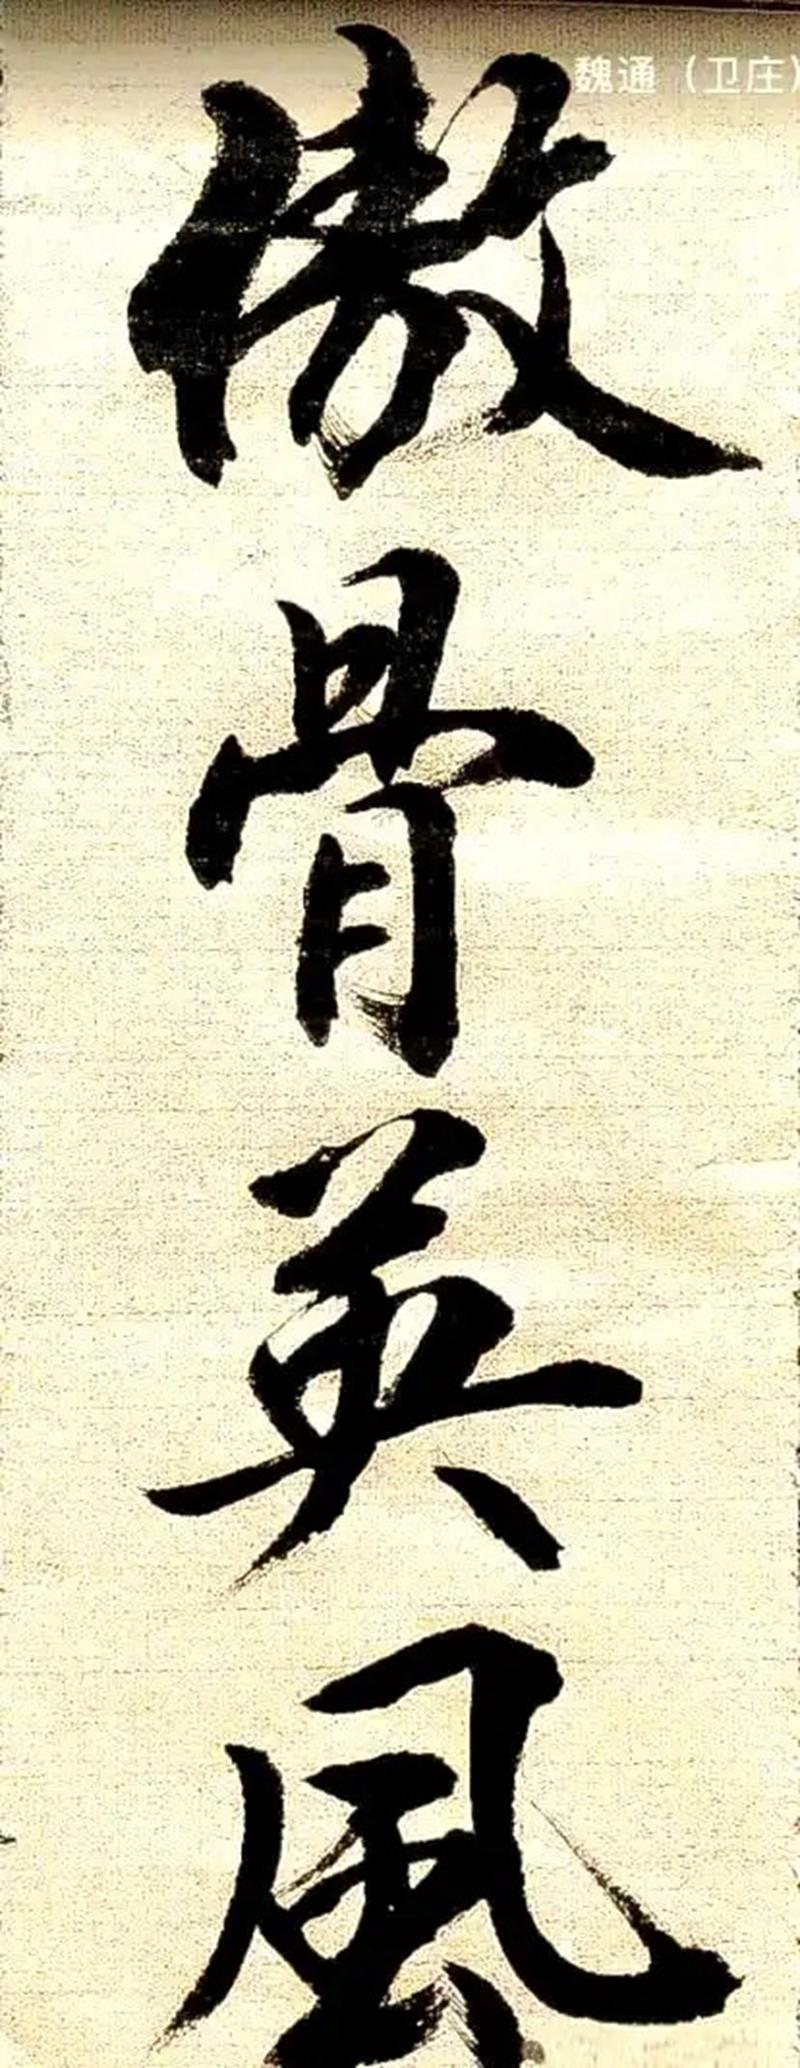 魏通（卫庄）
傲骨英風